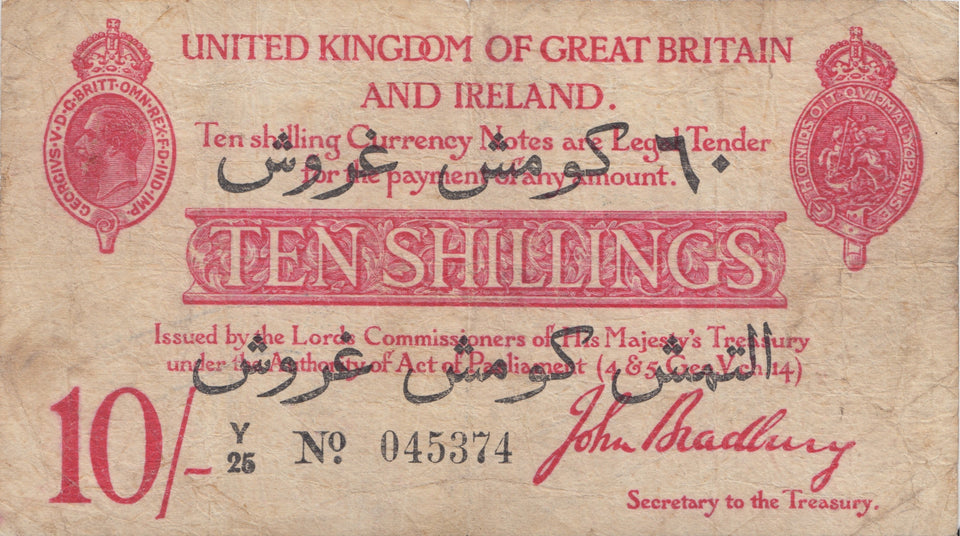 UNITED KINGDOM OF GREAT BRITAIN
AND IRELAND.
GEORGIVS·V·D·G·BRITT·OMN·REX·F·D·IND·IMP·
HONI·SOIT·QVI·MAL·Y·PENSE
Ten shilling Currency Notes are Legal Tender
for the payment of any amount.
٦٠ كومش غروش
TEN SHILLINGS
Issued by the Lords Commissioners of His Majesty's Treasury
under the Authority of Act of Parliament (4 & 5 Geo. V. ch. 14)
التمش كومش غروش
10/-
Y
25
Nº 045374
John Bradbury
Secretary to the Treasury.